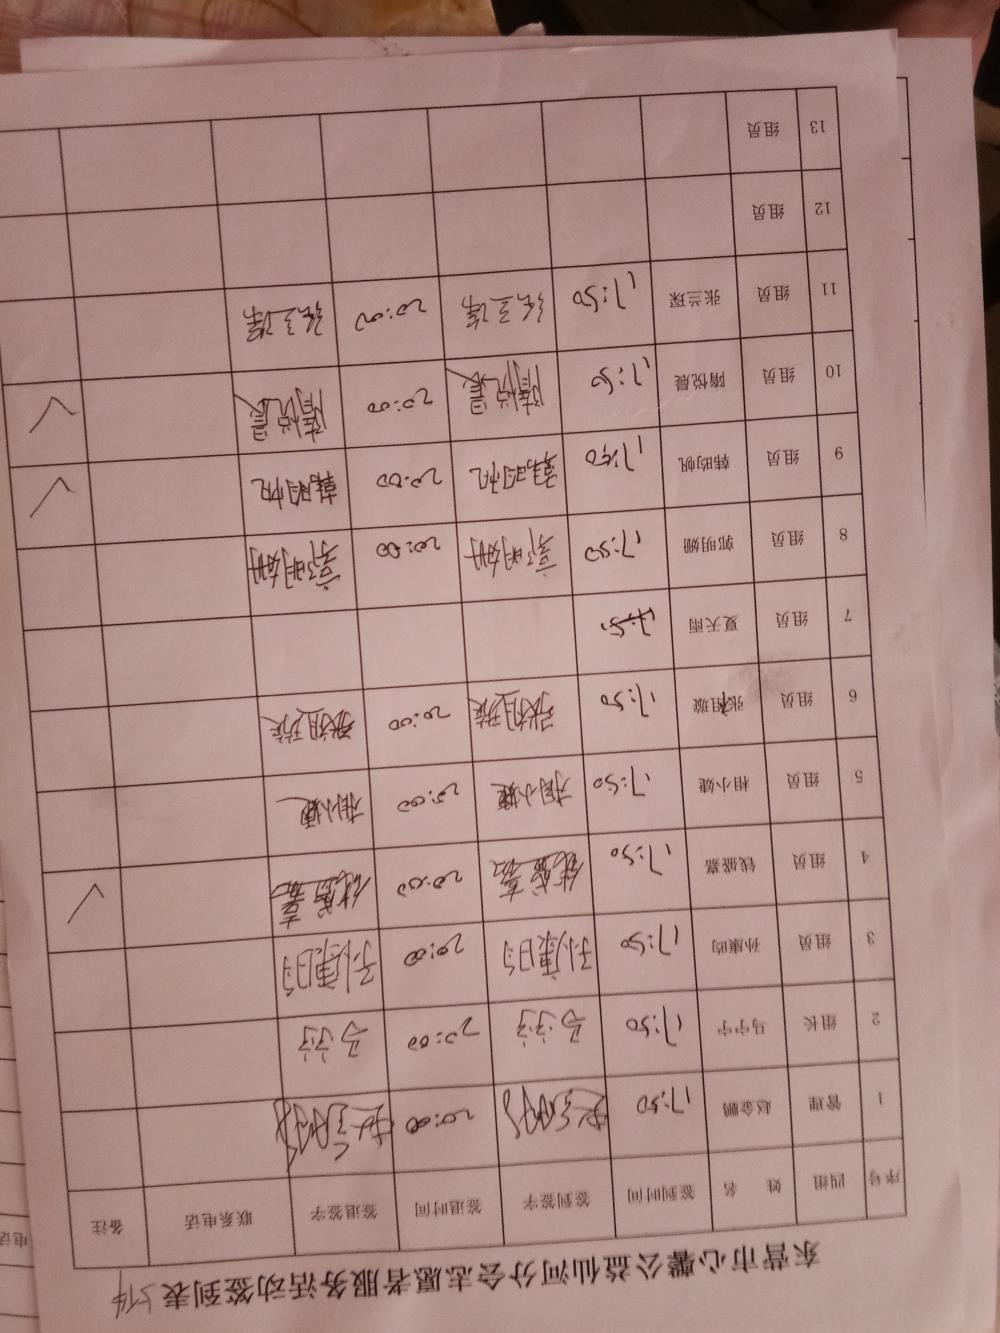 东营市心馨公益仙河分会志愿者服务活动签到表
序号 四组 姓 名 签到时间 签到签字 签退时间 签退签字 联系电话 备注
1 管理 赵金鹏 17:50 赵金鹏 20:00 赵金鹏
2 组长 马宁宁 17:50 马宁宁 20:00 马宁宁
3 组员 孙康昀 17:50 孙康昀 20:00 孙康昀
4 组员 钱盛嘉 17:50 钱盛嘉 20:00 钱盛嘉 √
5 组员 相小婕 17:50 相小婕 20:00 相小婕
6 组员 张祖璇 17:50 张祖璇 20:00 张祖璇
7 组员 夏天雨 17:50
8 组员 郭明姗 17:50 郭明姗 20:00 郭明姗
9 组员 韩昀帆 17:50 韩昀帆 20:00 韩昀帆 √
10 组员 隋悦晨 17:50 隋悦晨 20:00 隋悦晨 √
11 组员 张兰琛 17:50 张兰琛 20:00 张兰琛
12 组员
13 组员
电话